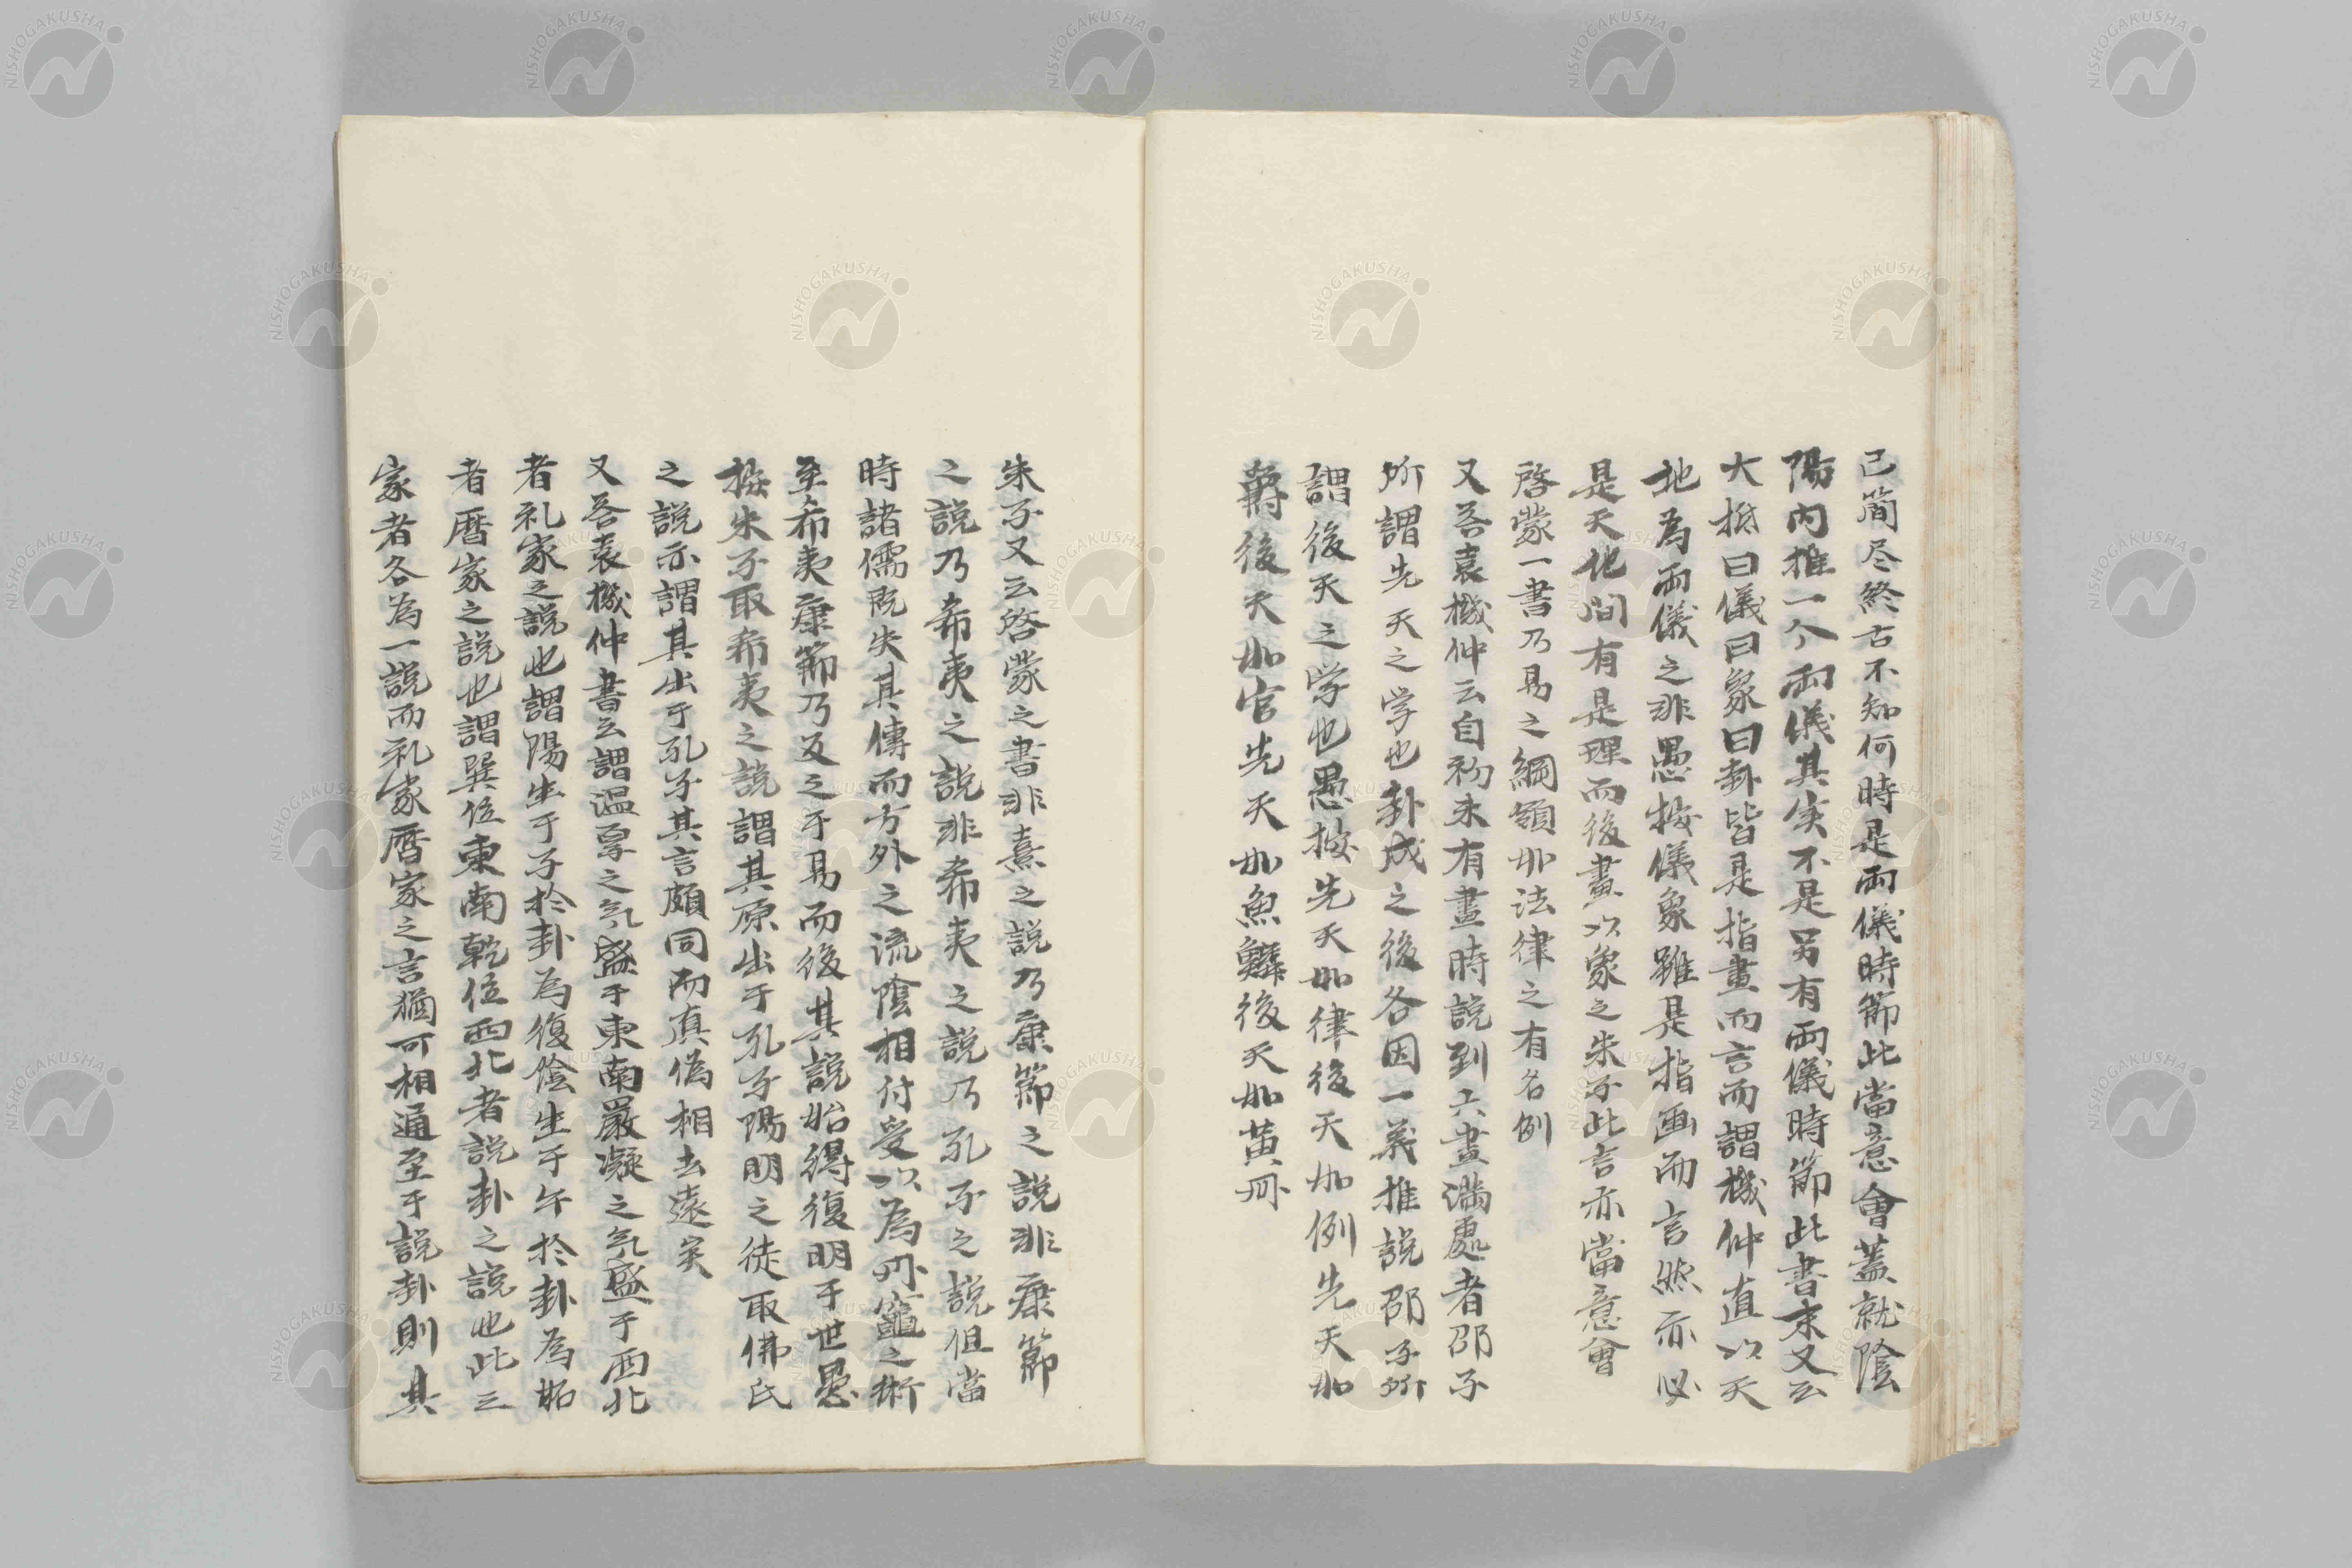 己簡尽終古不知何時是両儀時節此當意會蓋就陰
陽内推一个両儀其実不是另有両儀時節此書末又云
大抵曰儀曰象曰卦皆是指畫而言而謂機仲直以天
地為両儀之非愚按儀象雖是指画而言然亦必
是天地間有是理而後畫以象之朱子此言亦當意會
啓蒙一書乃易之綱領如法律之有名例
又荅袁機仲云自初未有畫時説到六畫満處者邵子
所謂先天之学也卦成之後各因一義推説邵子所
謂後天之学也愚按先天如律後天如例先天如
爵後天如官先天如魚鱗後天如黄冊
朱子又云啓蒙之書非熹之説乃康節之説非康節
之説乃希夷之説非希夷之説乃孔子之説但當
時諸儒既失其傳而方外之流陰相付受以為丹竈之術
至希夷康節乃反之于易而後其説始得復明于世愚
按朱子取希夷之説謂其原出于孔子陽明之徒取佛氏
之説亦謂其出于孔子其言頗同而真偽相去遠矣
又荅袁機仲書云謂温厚之气盛于東南嚴凝之气盛于西北
者礼家之説也謂陽生于子於卦為復陰生于午於卦為姤
者暦家之説也謂巽位東南乾位西北者説卦之説也此三
家者各為一説而礼家暦家之言猶可相通至于説卦則其
NISHOGAKUSHA